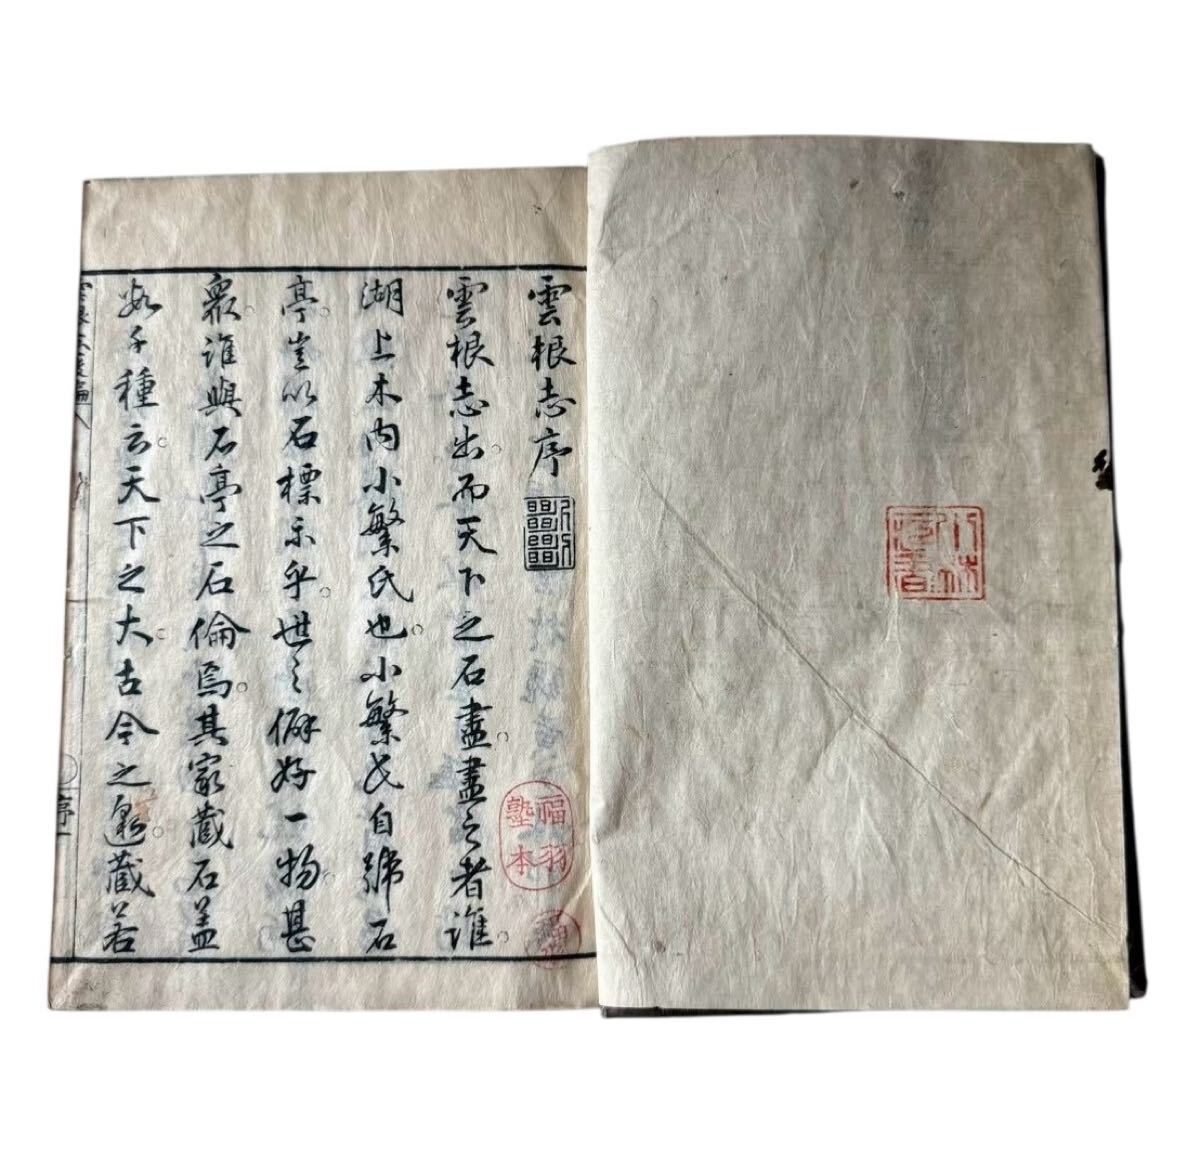 雲根志序
雲根志出而天下之石盡盡之者誰
湖上木内小繁氏也小繁氏自號石
亭豈以石標示乎世之僻好一物甚
衆誰與石亭之石倫焉其家藏石蓋
數千種云天下之大古今之邈藏若
福羽
塾本
小林
序一